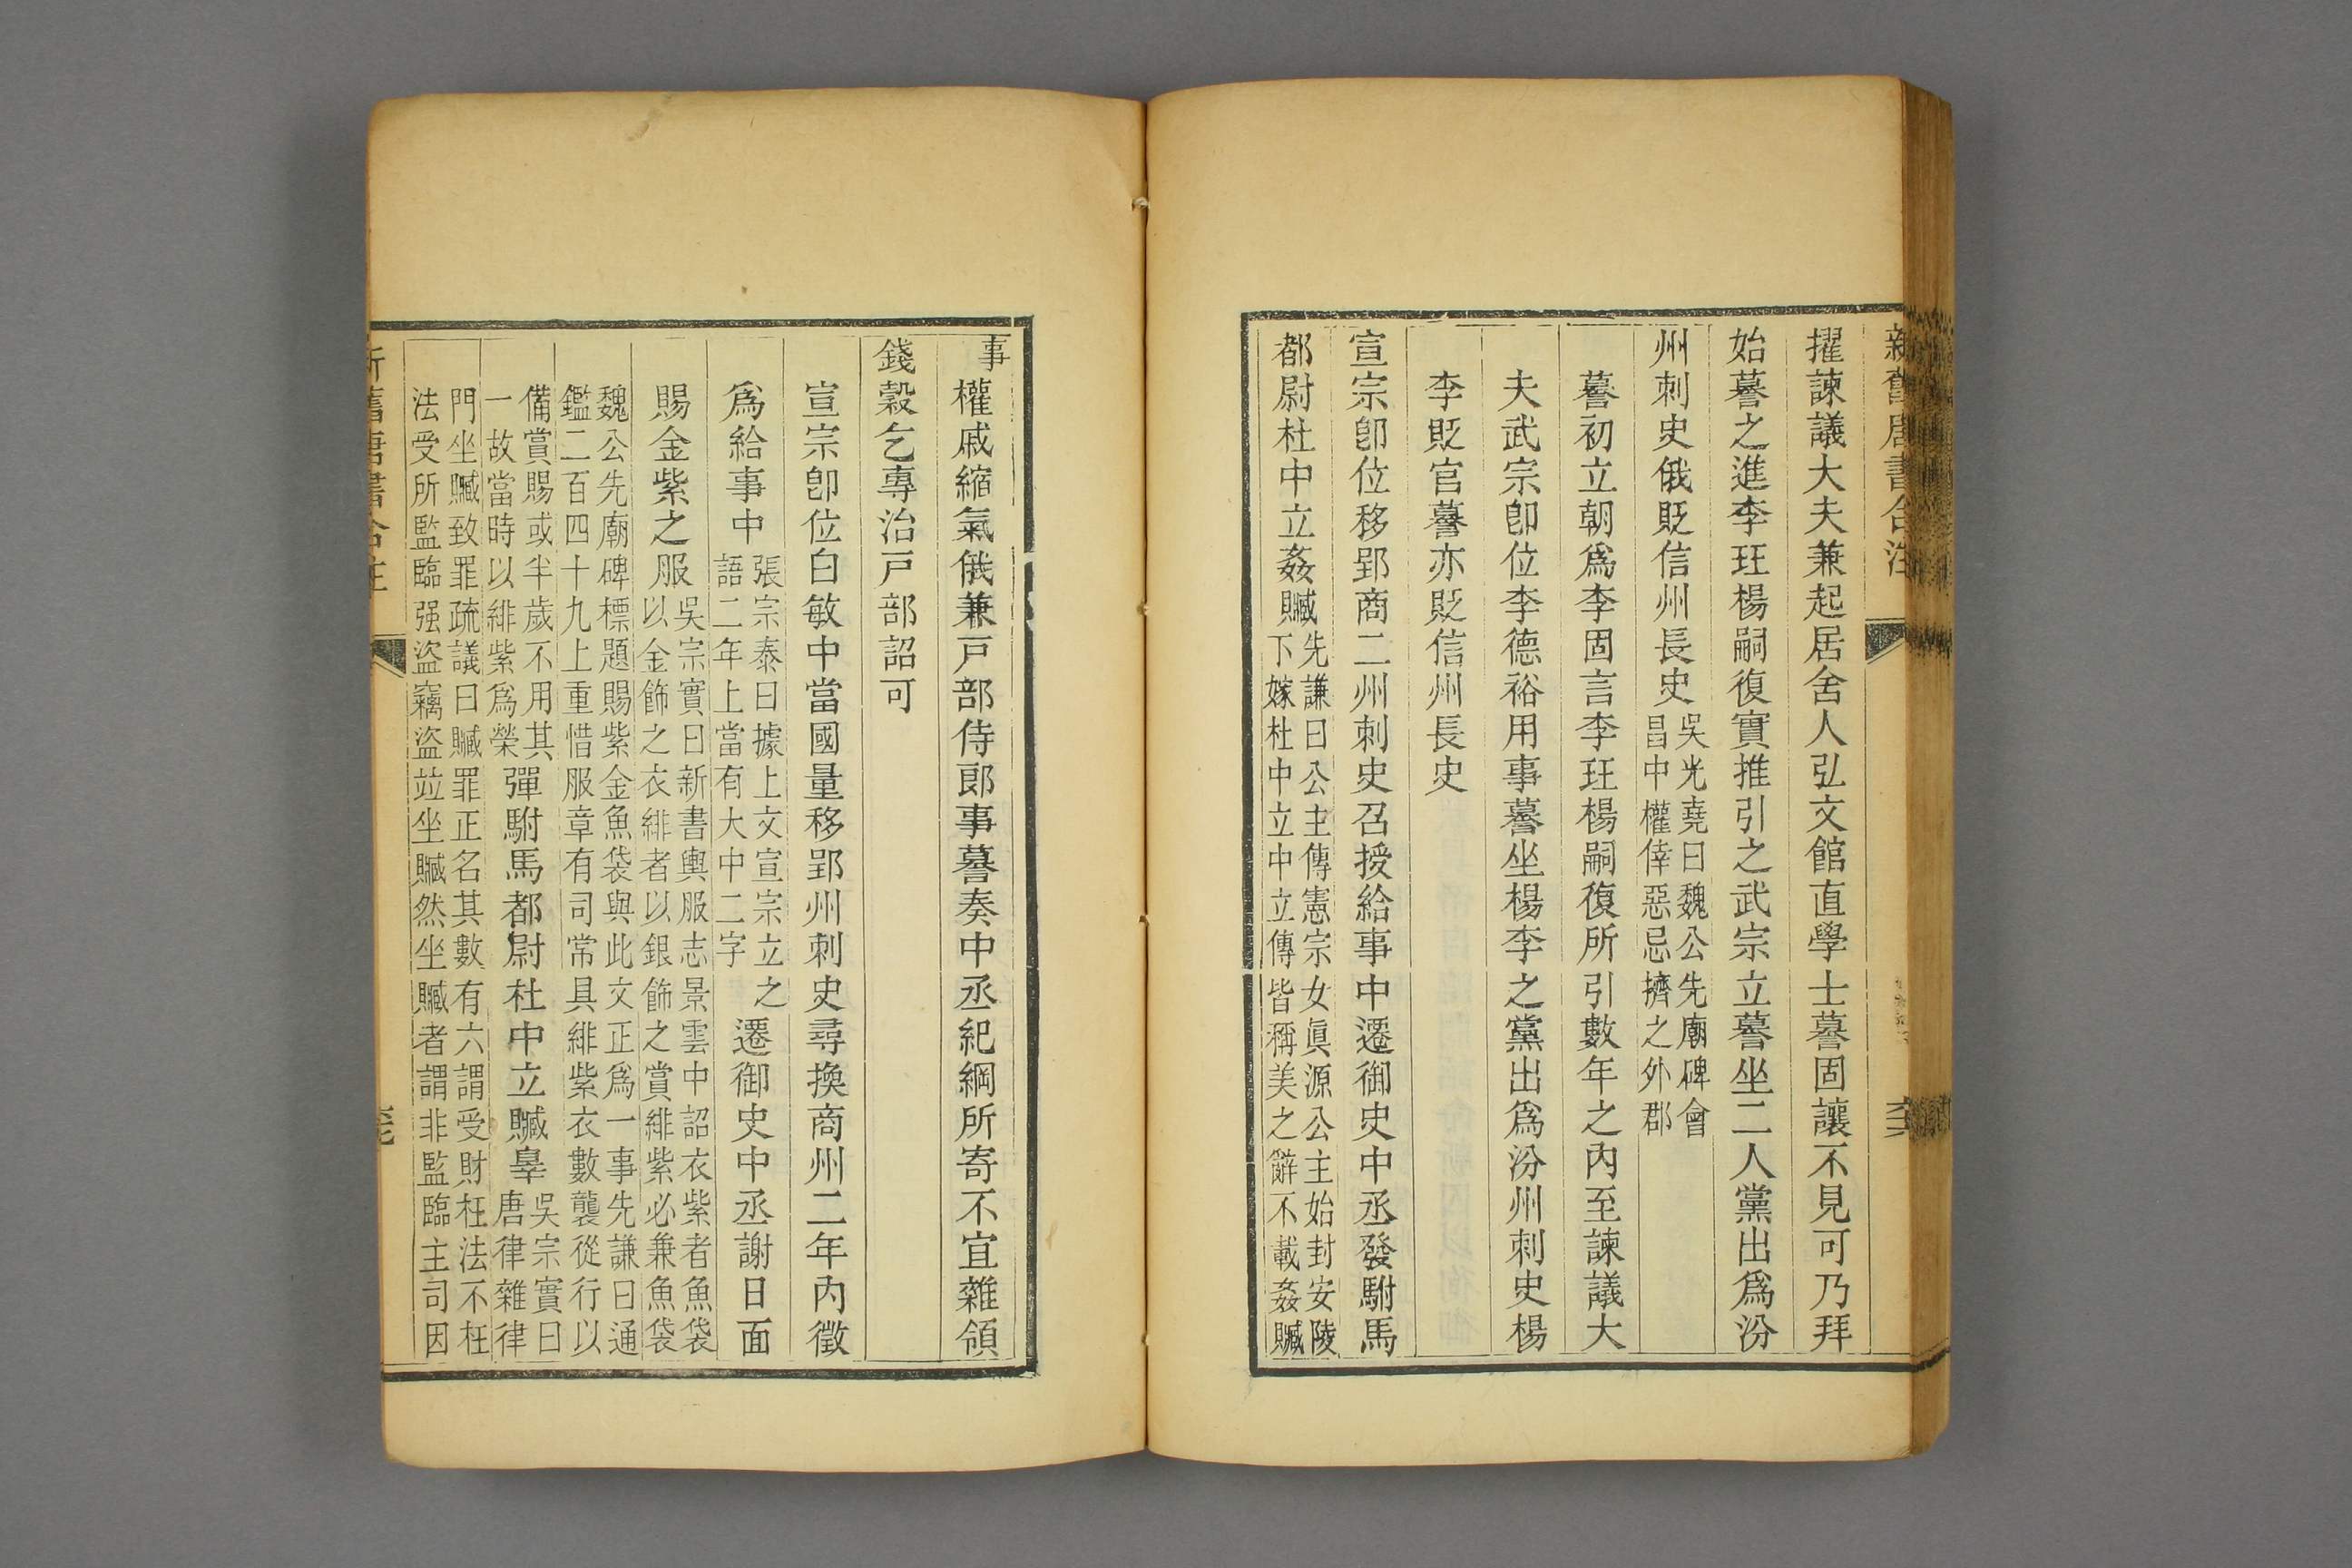 新舊唐書合注
六
擢諫議大夫兼起居舍人弘文館直學士謩固讓不見可乃拜
始謩之進李玨楊嗣復實推引之武宗立謩坐二人黨出爲汾
州刺史俄貶信州長史吳光堯曰魏公先廟碑會昌中權倖惡忌擠之外郡
謩初立朝爲李固言李玨楊嗣復所引數年之內至諫議大
夫武宗卽位李德裕用事謩坐楊李之黨出爲汾州刺史楊
李貶官謩亦貶信州長史
宣宗卽位移郢商二州刺史召授給事中遷御史中丞發駙馬
都尉杜中立姦贓先謙曰公主傳憲宗女眞源公主始封安陵下嫁杜中立中立傳皆稱美之辭不載姦贓
事權戚縮氣俄兼戸部侍郞事謩奏中丞紀綱所寄不宜雜領
錢穀乞專治戸部詔可
宣宗卽位白敏中當國量移郢州刺史尋換商州二年內徵
爲給事中張宗泰曰據上文宣宗立之語二年上當有大中二字遷御史中丞謝日面
賜金紫之服吳宗實曰新書輿服志景雲中詔衣紫者魚袋以金飾之衣緋者以銀飾之賞緋紫必兼魚袋
魏公先廟碑標題賜紫金魚袋與此文正爲一事先謙曰通鑑二百四十九上重惜服章有司常具緋紫衣數襲從行以
備賞賜或半歲不用其一故當時以緋紫爲榮彈駙馬都尉杜中立贓辠吳宗實曰唐律雜律
門坐贓致罪疏議曰贓罪正名其數有六謂受財枉法不枉法受所監臨强盜竊盜竝坐贓然坐贓者謂非監臨主司因
新舊唐書合注